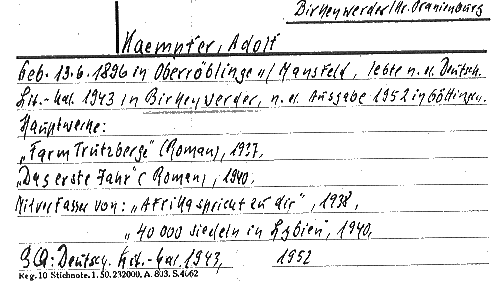 Birkenwerder/Kr. Oranienburg
Kaempfer, Adolf
Geb. 13.6.1896 in Oberröblingen/Mansfeld, lebte n. d. Deutsch.
Lit.-Kal. 1943 in Birkenwerder, n. d. Ausgabe 1952 in Göttingen.
Hauptwerke:
„Farm Trutzberge" (Roman), 1937,
„Das erste Jahr" (Roman), 1940,
Mitverfasser von: „Afrika spricht zu dir", 1938,
„40 000 siedeln in Lybien", 1940.
Qu: Deutsch. Lit.-Kal. 1943, 1952
Reg. 10 Stichnote. 1. 50. 232000. A. 803. S. 4662